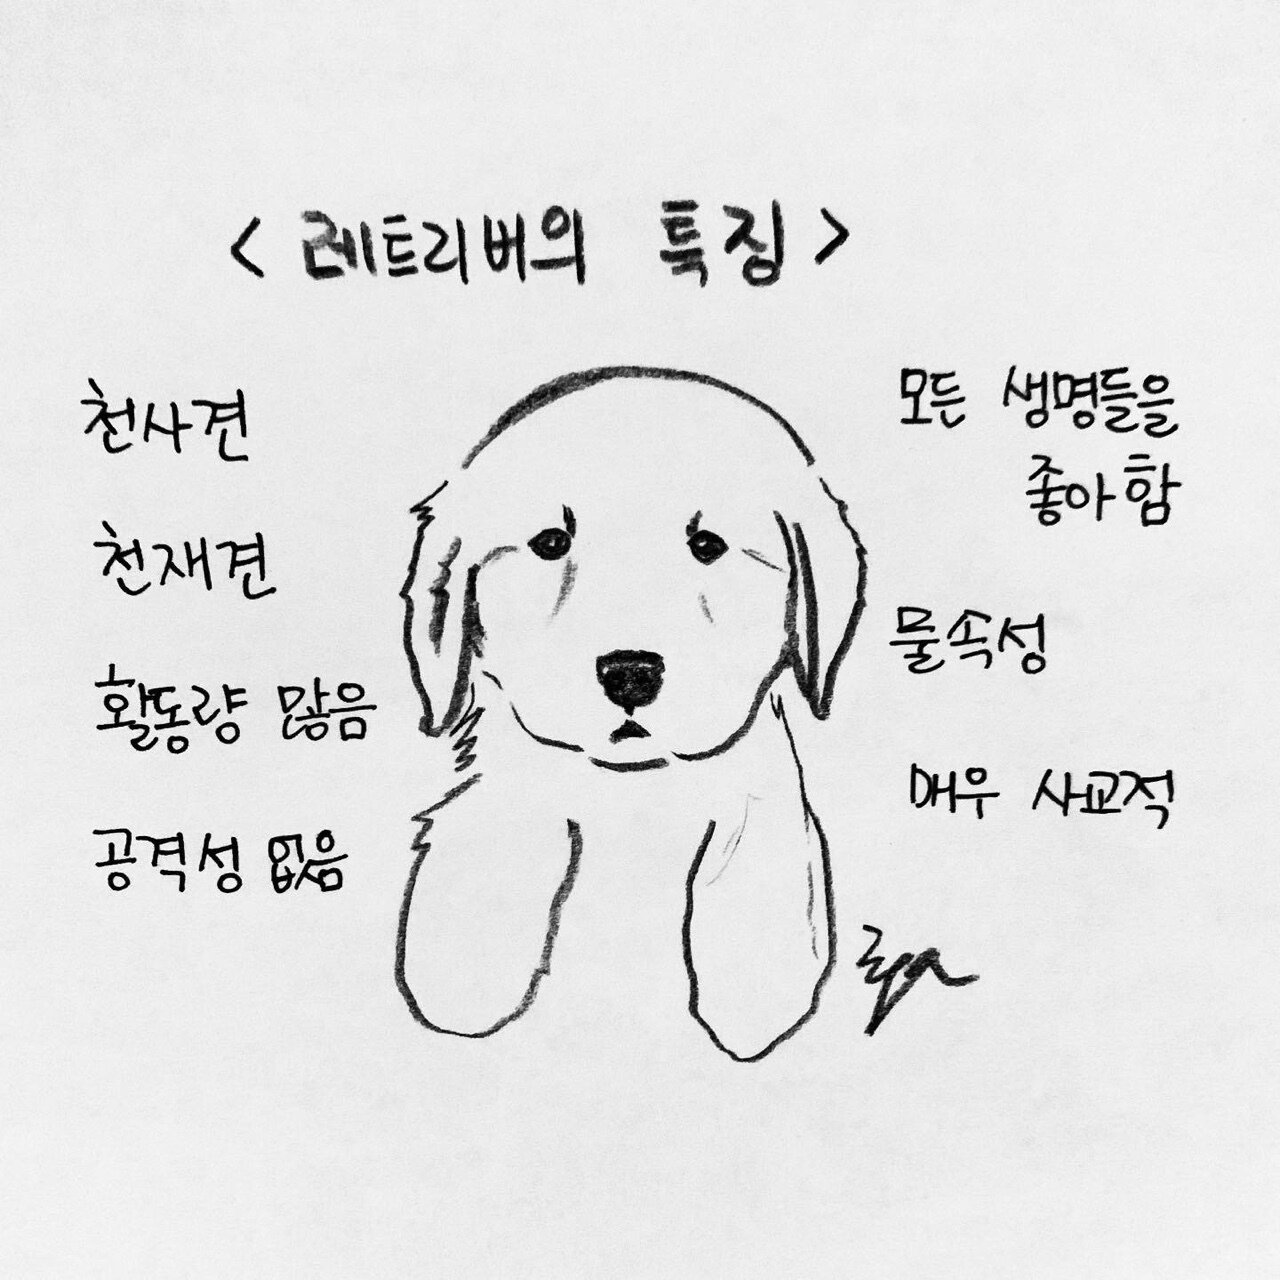 < 레트리버의 특징 >
천사견
천재견
활동량 많음
공격성 없음
모든 생명들을
좋아함
물속성
매우 사교적